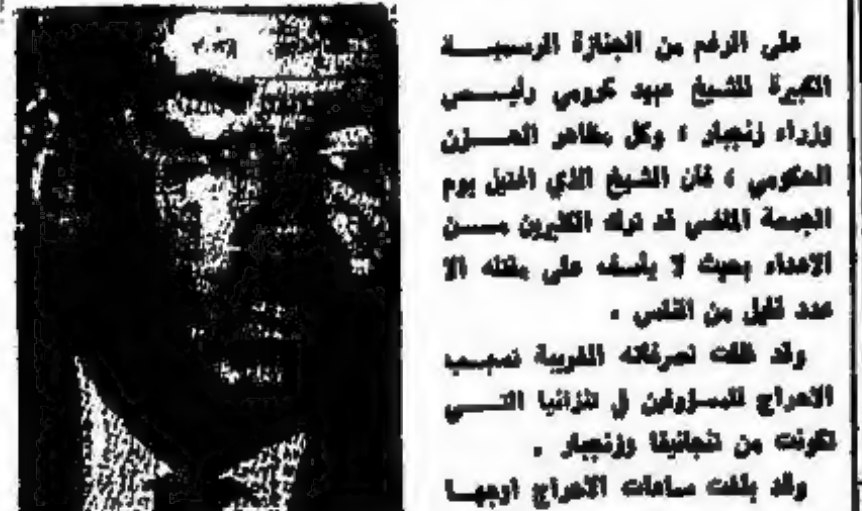 على الرغم من الجنازة الرسميـــة
الكبيرة للشيخ عبيد كرومي رئيـــس
وزراء زنجبار ، وكل مظاهر الحـــزن
الحكومي ، فان الشيخ الذي اغتيل يوم
الجمعة الماضي قد ترك الكثيرين مـــن
الاعداء بحيث لا يأسف على مقتله الا
عدد قليل من الناس .
وقد ظلت تصرفاته الغريبة تسبب
الاحراج للمسؤولين في تنزانيا التـــي
تكونت من تنجانيقا وزنجبار .
وقد بلغت ساعات الاحراج اوجهـــا